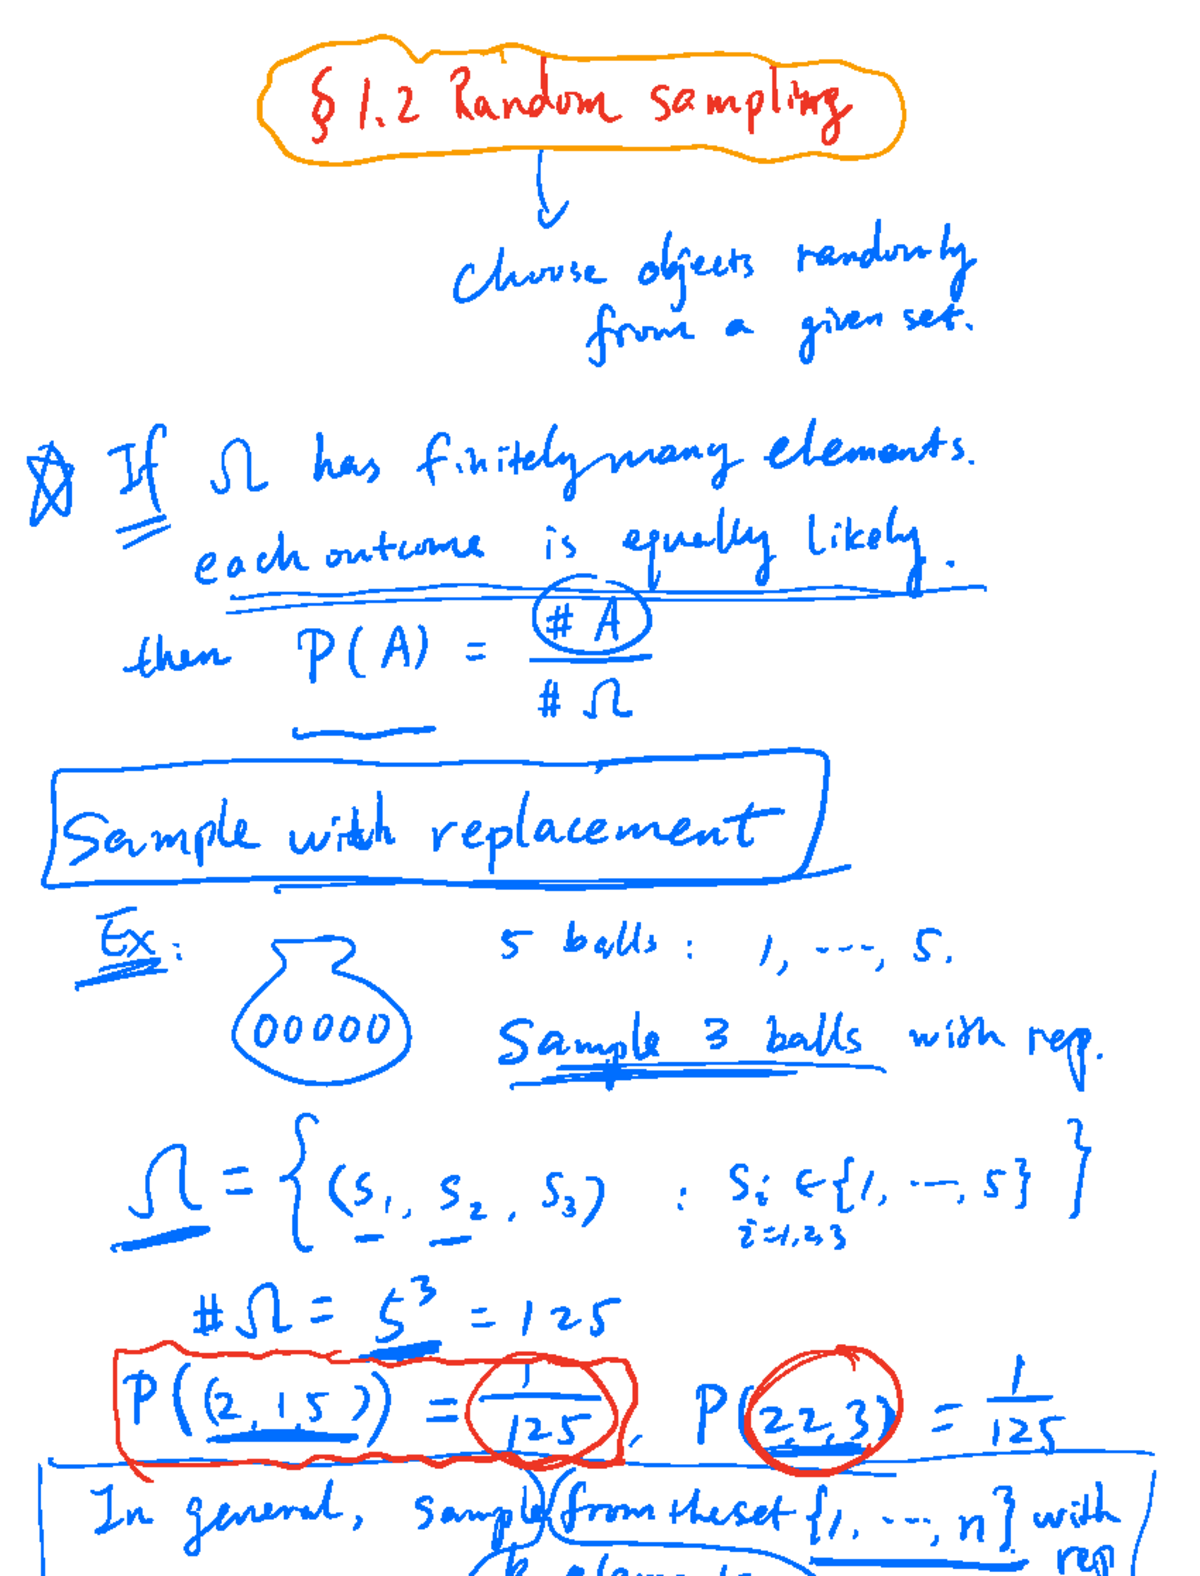 § 1.2 Random sampling
Choose objects randomly
from a given set.
If Ω has finitely many elements.
each outcome is equally likely.
then P(A) = #A / #Ω
Sample with replacement
Ex: 5 balls: 1, ---, 5.
00000
Sample 3 balls with rep.
Ω = {(S₁, S₂, S₃) : Sᵢ ∈ {1, ---, 5}}
i=1,2,3
#Ω = 5³ = 125
P((2,1,5)) = 1/125, P(2,2,3) = 1/125
In general, sample from the set {1, ---, n} with
k elements rep